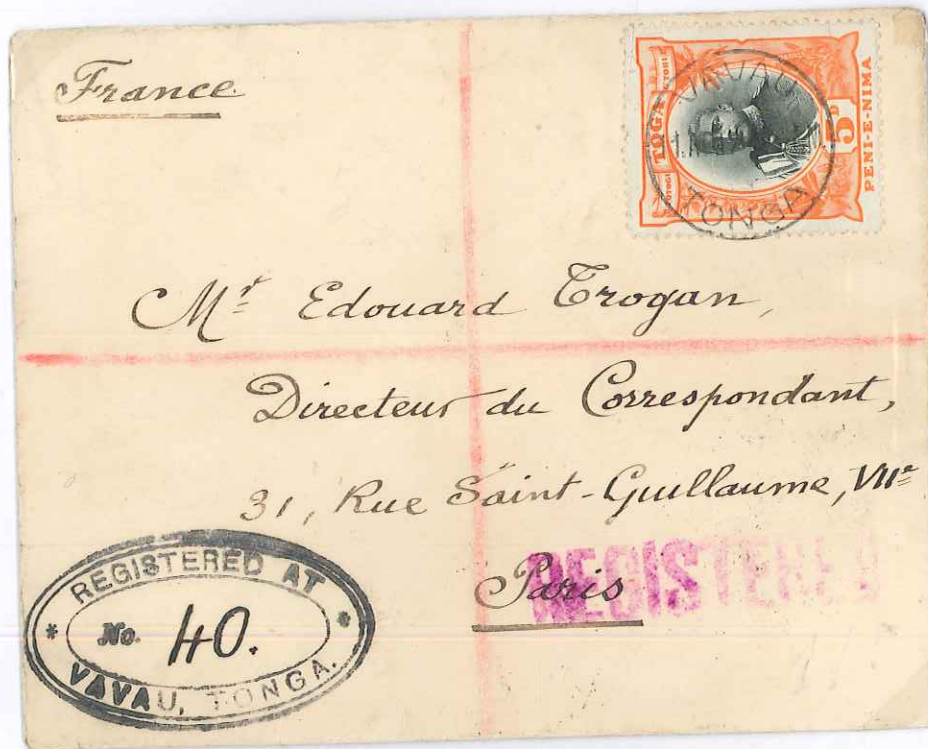 France
TOGA
5D
PENI-E-NIMA
VAVAU
TONGA
Mr Edouard Trogan,
Directeur du Correspondant,
31, Rue Saint-Guillaume, VIIe
Paris
REGISTERED
REGISTERED AT
No. 40.
VAVAU, TONGA.